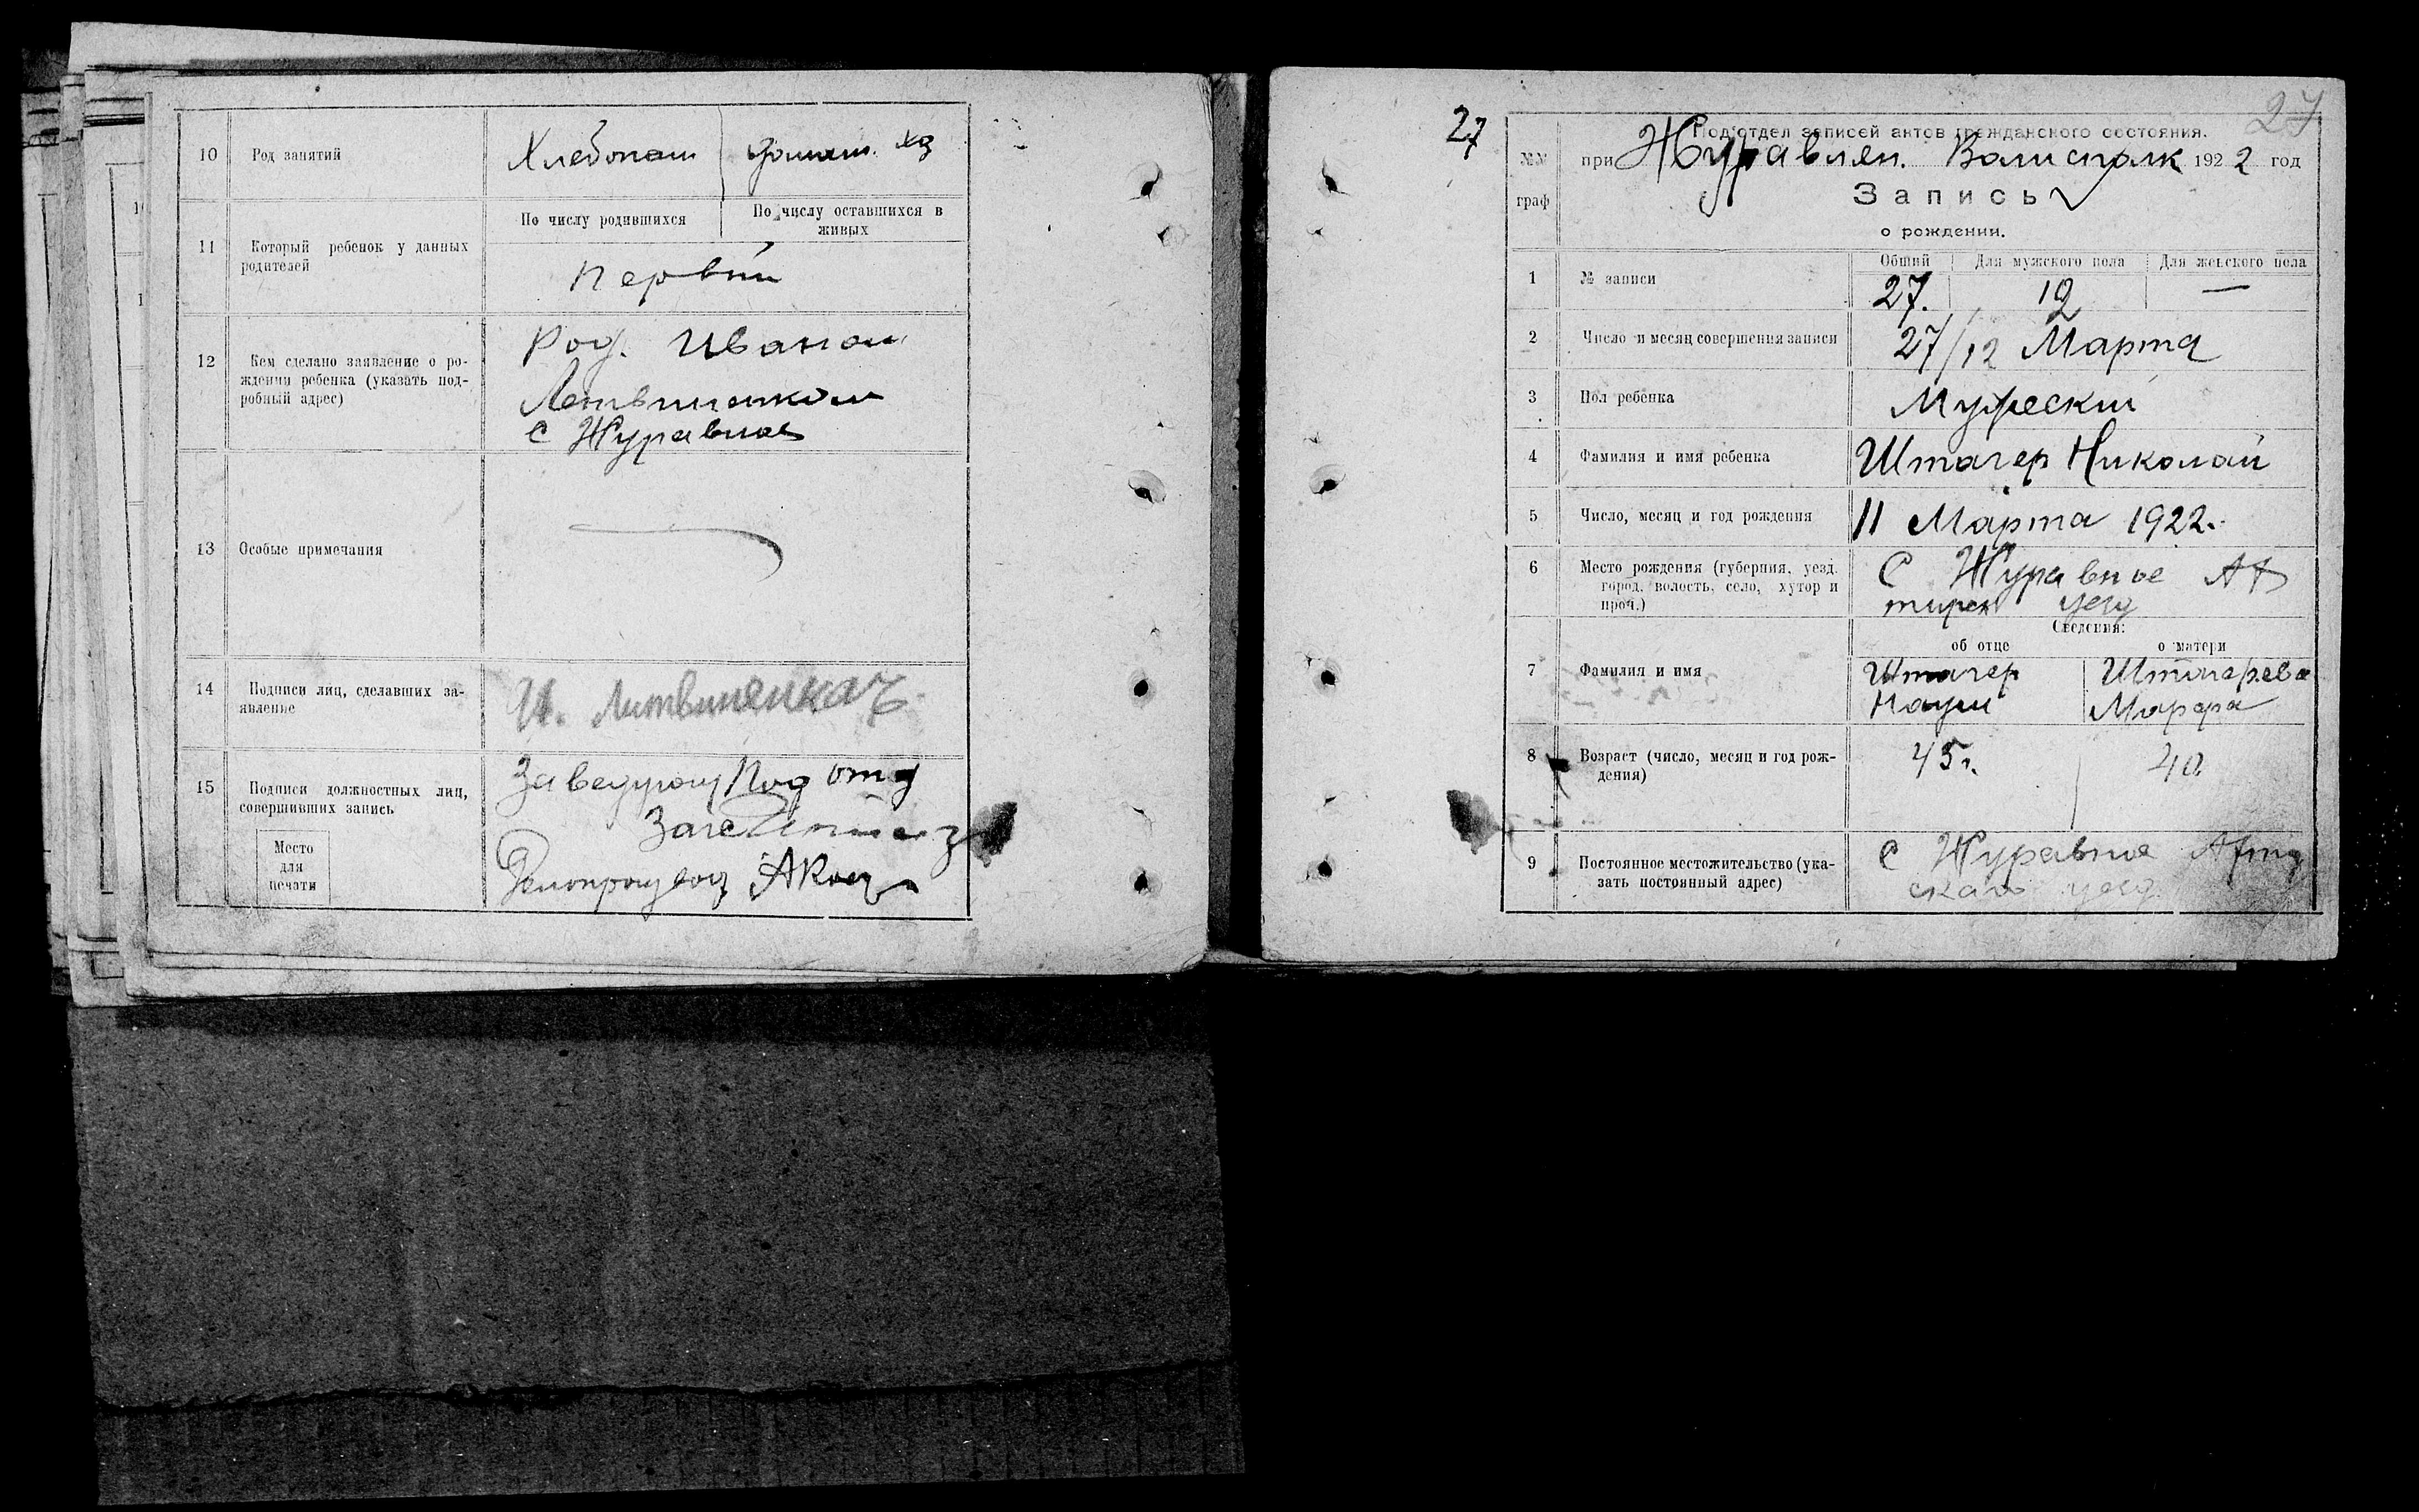 10 Род занятий Хлебопаш домаш. хз
11 Который ребенок у данных родителей
По числу родившихся По числу оставшихся в живых
первый
12 Кем сделано заявление о рождении ребенка (указать подробный адрес)
Род. Иваном
Летвиненком
с Журавное
13 Особые примечания
14 Подписи лиц, сделавших заявление
И. Литвиненка
15 Подписи должностных лиц, совершивших запись
Заведующ Подотд
Загс
Делопроизвод
Место
для
печати
27
27
Под'отдел записей актов гражданского состояния.
№№ граф
при Журавлен. Волисполк 1922 год
Запись
о рождении.
Общий Для мужского пола Для женского пола
1 № записи 27. 12 —
2 Число и месяц совершения записи 27/12 Марта
3 Пол ребенка Мужеский
4 Фамилия и имя ребенка Штагер Николай
5 Число, месяц и год рождения 11 Марта 1922.
6 Место рождения (губерния, уезд. город, волость, село, хутор и проч.)
С Журавное Ах
тирск уезд
Сведения:
об отце о матери
7 Фамилия и имя
Штагер Штагерева
Наум Марфа
8 Возраст (число, месяц и год рождения) 45 г. 40
9 Постоянное местожительство (указать постоянный адрес)
с Журавное
скаго уезд